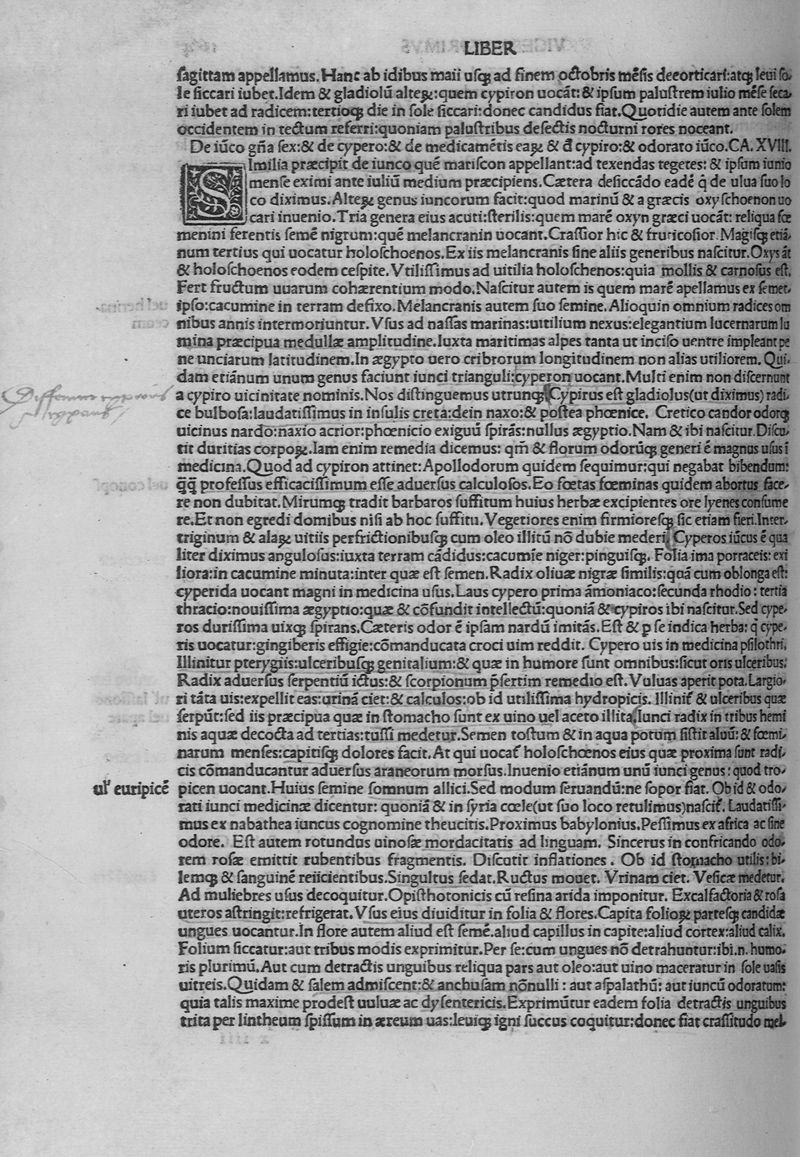 LIBER
ſagittam appellamus. Hanc ab idibus maii uſq; ad finem octobris mēſis decorticari:atq; leui ſo-
le ſiccari iubet. Idem & gladiolū alteꝝ:quem cypiron uocāt:& ipſum paluſtrem iulio mēſe ſeca-
ri iubet ad radicem:tertioq; die in ſole ſiccari:donec candidus fiat. Quotidie autem ante ſolem
occidentem in tectum referri:quoniam paluſtribus deſectis nocturni rores noceant.
De iūco gn̄a ſex:& de cypero:& de medicamētis eaꝝ & đ cypiro:& odorato iūco. CA. XVIII.
SImilia præcipit de iunco quē mariſcon appellant:ad texendas tegetes:& ipſum iunio
menſe eximi ante iuliū medium præcipiens. Cætera deſiccādo eadē q̄ de ulua ſuo lo
co diximus. Alteꝝ genus iuncorum facit:quod marinū & a græcis oxyſchoenon uo
cari inuenio. Tria genera eius acuti:ſterilis:quem marē oxyn græci uocāt: reliqua fœ
menini ferentis ſemē nigrum:quē melancranin uocant. Craſſior hic & fruticoſior. Magiſq; etiā-
num tertius qui uocatur holoſchoenos. Ex iis melancranis ſine aliis generibus naſcitur. Oxys āt
& holoſchoenos eodem ceſpite. Vtiliſſimus ad uitilia holoſchenos:quia mollis & carnoſus eſt.
Fert fructum uuarum cohærentium modo. Naſcitur autem is quem marē apellamus ex ſemet-
ipſo:cacumine in terram defixo. Melancranis autem ſuo ſemine. Alioquin omnium radices om
nibus annis intermoriuntur. Vſus ad naſſas marinas:uitilium nexus:elegantium lucernarum lu
mina præcipua medullæ amplitudine. Iuxta maritimas alpes tanta ut inciſo uentre impleant pe
ne unciarum latitudinem. In ægypto uero cribrorum longitudinem non alias utiliorem. Qui-
dam etiānum unum genus faciunt iunci trianguli:cyperon uocant. Multi enim non diſcernunt
a cypiro uicinitate nominis. Nos diſtinguemus utrunq; Cypirus eſt gladiolus(ut diximus) radi-
ce bulboſa:laudatiſſimus in inſulis creta:dein naxo:& poſtea phœnice. Cretico candor odorq;
uicinus nardo:naxio acrior:phœnicio exiguū ſpirās:nullus ægyptio. Nam & ibi naſcitur. Diſcu-
tit duritias corpoꝝ. Iam enim remedia dicemus: qm̄ & florum odorūq; generi ē magnus uſus ī
medicina. Quod ad cypiron attinet:Apollodorum quidem ſequimur:qui negabat bibendum:
q̄q̄ profeſſus efficaciſſimum eſſe aduerſus calculoſos. Eo fœtas fœminas quidem abortus face-
re non dubitat. Mirumq; tradit barbaros ſuffitum huius herbæ excipientes ore lyenes conſume
re. Et non egredi domibus niſi ab hoc ſuffitu. Vegetiores enim firmioreſq; ſic etiam fieri. Inter-
triginum & alaꝝ uitiis perfrictionibuſq; cum oleo illitū nō dubie mederi. Cyperos iūcus ē qua
liter diximus anguloſus:iuxta terram cādidus:cacumīe niger:pinguiſq;. Folia ima porraceis: exi
liora:in cacumine minuta:inter quæ eſt ſemen. Radix oliuæ nigræ ſimilis:quā cum oblonga eſt:
cyperida uocant magni in medicina uſus. Laus cypero prima āmoniaco:ſecunda rhodio: tertia
thracio:nouiſſima ægyptio:quæ & cōfundit intellectū:quoniā & cypiros ibi naſcitur. Sed cype-
ros duriſſima uixq; ſpirans. Cæteris odor ē ipſam nardū imitās. Eſt & p ſe indica herba: q̄ cype-
ris uocatur:gingiberis effigie:cōmanducata croci uim reddit. Cypero uis in medicina pſilothri.
Illinitur pterygiis:ulceribuſq; genitalium:& quæ in humore ſunt omnibus:ſicut oris ulceribus.
Radix aduerſus ſerpentiū ictus:& ſcorpionum p̄ſertim remedio eſt. Vuluas aperit pota. Largio-
ri tāta uis:expellit eas:urinā ciet:& calculos:ob id utiliſſima hydropicis. Illinit̃ & ulceribus quæ
ſerpūt:ſed iis præcipua quæ in ſtomacho ſunt ex uino uel aceto illita. Iunci radix in tribus hemi
nis aquæ decocta ad tertias:tuſſi medetur. Semen toſtum & in aqua potum ſiſtit aluū: & fœmi-
narum menſes:capitiſq; dolores facit. At qui uocat̃ holoſchœnos eius quæ proxima ſunt radi-
cis cōmanducantur aduerſus araneorum morſus. Inuenio etiānum unū iunci genus: quod tro-
ul' euripicē picen uocant. Huius ſemine ſomnum allici. Sed modum ſeruandū:ne ſopor fiat. Ob id & odo-
rati iunci medicinæ dicentur: quoniā & in ſyria cœle(ut ſuo loco retulimus)naſcit̃. Laudatiſſi-
mus ex nabathea iuncus cognomine theucitis. Proximus babylonius. Peſſimus ex africa ac ſine
odore. Eſt autem rotundus uinoſæ mordacitatis ad linguam. Sincerus in confricando odo-
rem roſæ emittit rubentibus fragmentis. Diſcutit inflationes. Ob id ſtomacho utilis:bi-
lemq; & ſanguinē reiicientibus. Singultus ſedat. Ructus mouet. Vrinam ciet. Veſicæ medetur.
Ad muliebres uſus decoquitur. Opiſthotonicis cū reſina arida imponitur. Excalfactoria & roſa
uteros aſtringit:refrigerat. Vſus eius diuiditur in folia & flores. Capita folioꝝ parteſq; candidæ
ungues uocantur. In flore autem aliud eſt ſemē.aliud capillus in capite:aliud cortex:aliud calix.
Folium ſiccatur:aut tribus modis exprimitur. Per ſe:cum ungues nō detrahuntur:ibi.n. humo-
ris plurimū. Aut cum detractis unguibus reliqua pars aut oleo:aut uino maceratur in ſole uaſis
uitreis. Quidam & ſalem admiſcent:& anchuſam nōnulli: aut aſpalathū: aut iuncū odoratum:
quia talis maxime prodeſt uuluæ ac dyſentericis. Exprimūtur eadem folia detractis unguibus
trita per lintheum ſpiſſum in æreum uas:leuiq; igni ſuccus coquitur:donec fiat craſſitudo mel-